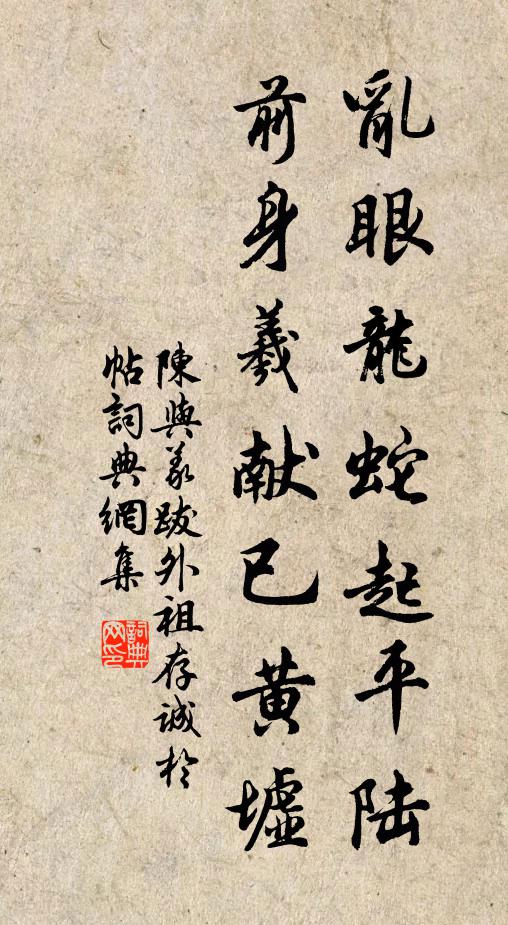 亂眼龍蛇起平陆
前身羲献已黄墟
陳與義跋外祖存誠於
帖詞典網集
詞典
网印